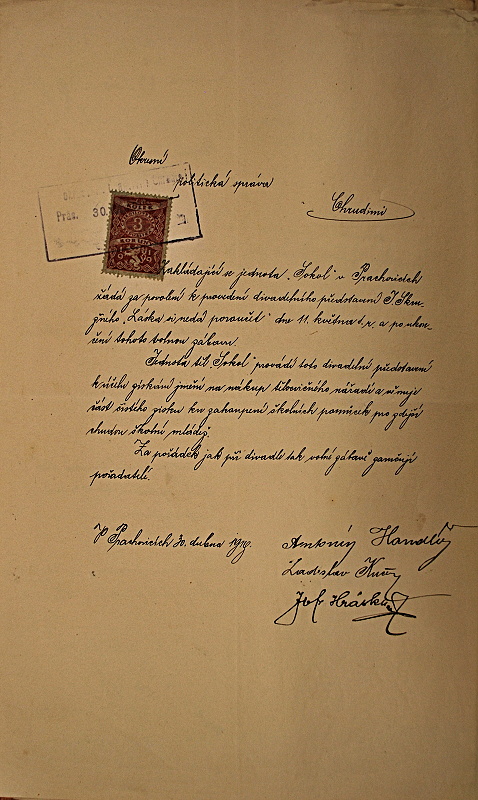 Okresní
politická správa
Chrudimi
30.
3
KORUN
Zakládající se jednota „Sokol" v Prachovicích
žádá za povolení k provedení divadelního představení J. Skru-
žného „Láska si nedá poroučet" dne 11. května t. r. a po ukon-
čení tohoto volnou zábavu.
Jednota těl. Sokol" provádí toto divadelní představení
k účelu získání jmění na nákup tělocvičného nářadí a věnuje
část čistého zisku ku zakoupení školních pomůcek pro zdejší
chudou školní mládež.
Za pořádek jak při divadle tak volné zábavě zaručují
pořadatelé.
V Prachovicích 30. dubna 1919.
Antonín
Ladeslav
Josef